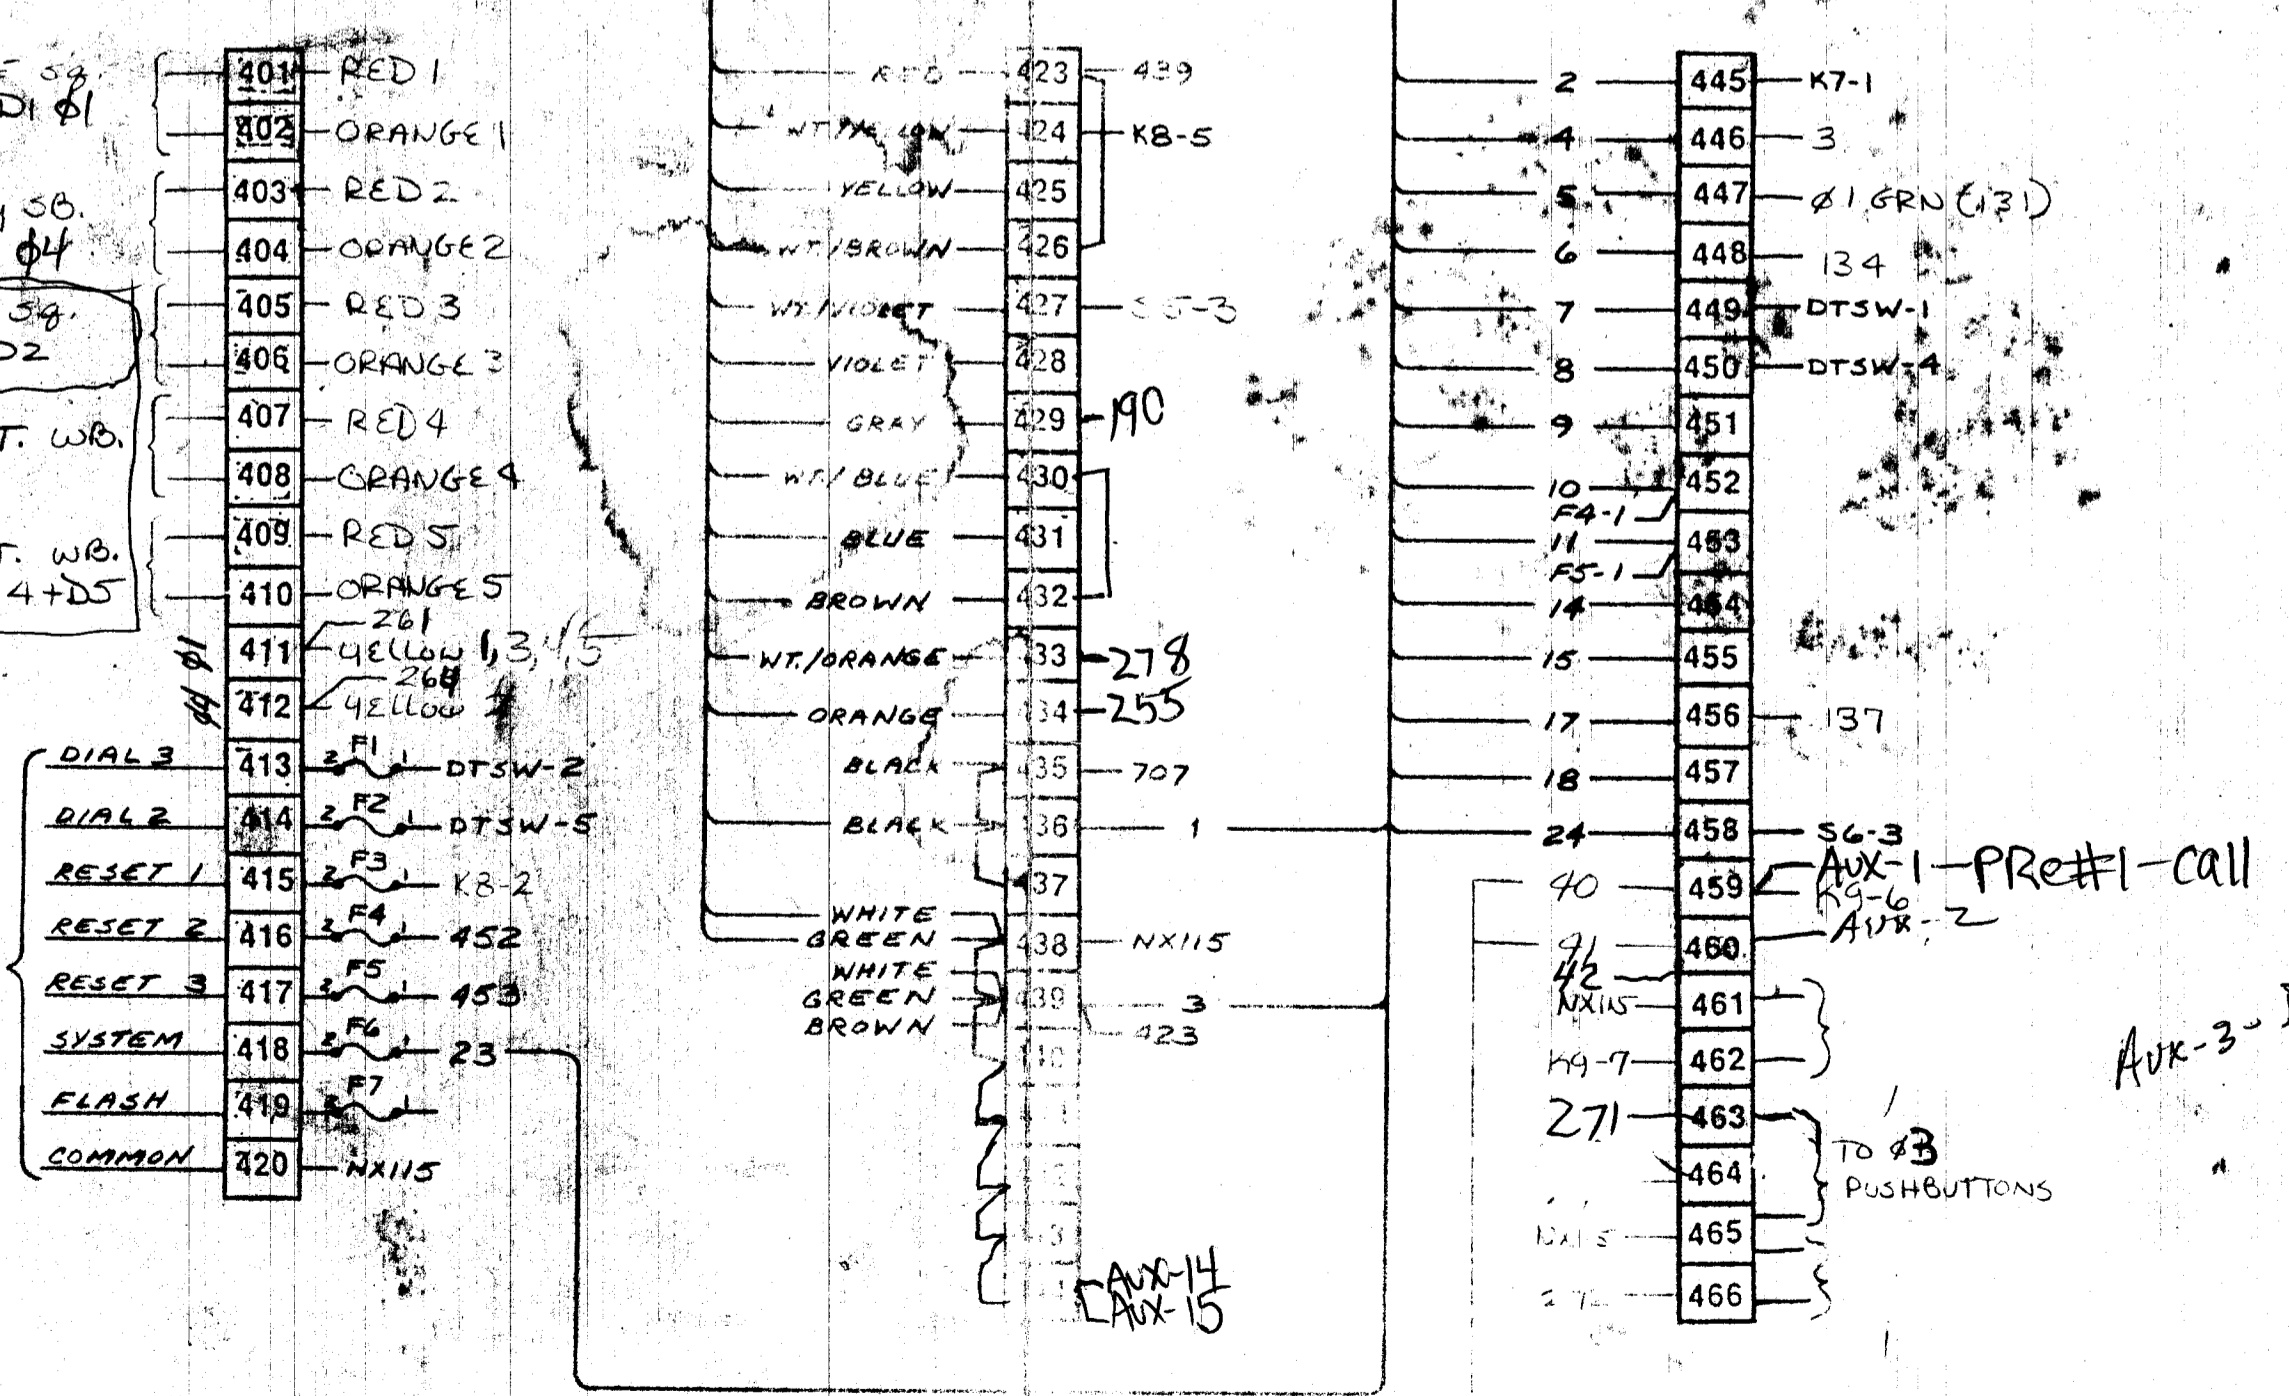 sq.
D1 ø1
401 RED 1
402 ORANGE 1
SB.
ø4
403 RED 2
404 ORANGE 2
sq.
D2
405 RED 3
406 ORANGE 3
T. WB.
407 RED 4
408 ORANGE 4
T. WB.
4+D5
409 RED 5
410 ORANGE 5
261
ø1 411 YELLOW 1, 3, 4, 5
ø4 412 YELLOW
DIAL 3 413 2 F1 1 DTSW-2
DIAL 2 414 2 F2 1 DTSW-5
RESET 1 415 2 F3 1 K8-2
RESET 2 416 2 F4 1 452
RESET 3 417 2 F5 1 453
SYSTEM 418 2 F6 1 23
FLASH 419 2 F7 1
COMMON 420 NX115
RED 423 439
WT./YELLOW 424 K8-5
YELLOW 425
WT./BROWN 426
WT./VIOLET 427 S5-3
VIOLET 428
GRAY 429 190
WT./BLUE 430
BLUE 431
BROWN 432
WT./ORANGE 433 278
ORANGE 434 255
BLACK 435 707
BLACK 436 1
437
WHITE
GREEN 438 NX115
WHITE
GREEN 439 3
BROWN 423
440
AUX-14
AUX-15
2 445 K7-1
4 446 3
5 447 ø1 GRN (131)
6 448 134
7 449 DTSW-1
8 450 DTSW-4
9 451
10 452
F4-1
11 453
F5-1
14 454
15 455
17 456 137
18 457
24 458 S6-3
AUX-1-PRe#1-call
40 459 K9-6
41 460 AUX-2
42
NX115 461
K9-7 462
AUX-3-
271 463
464
TO ø3
PUSHBUTTONS
NX115 465
466